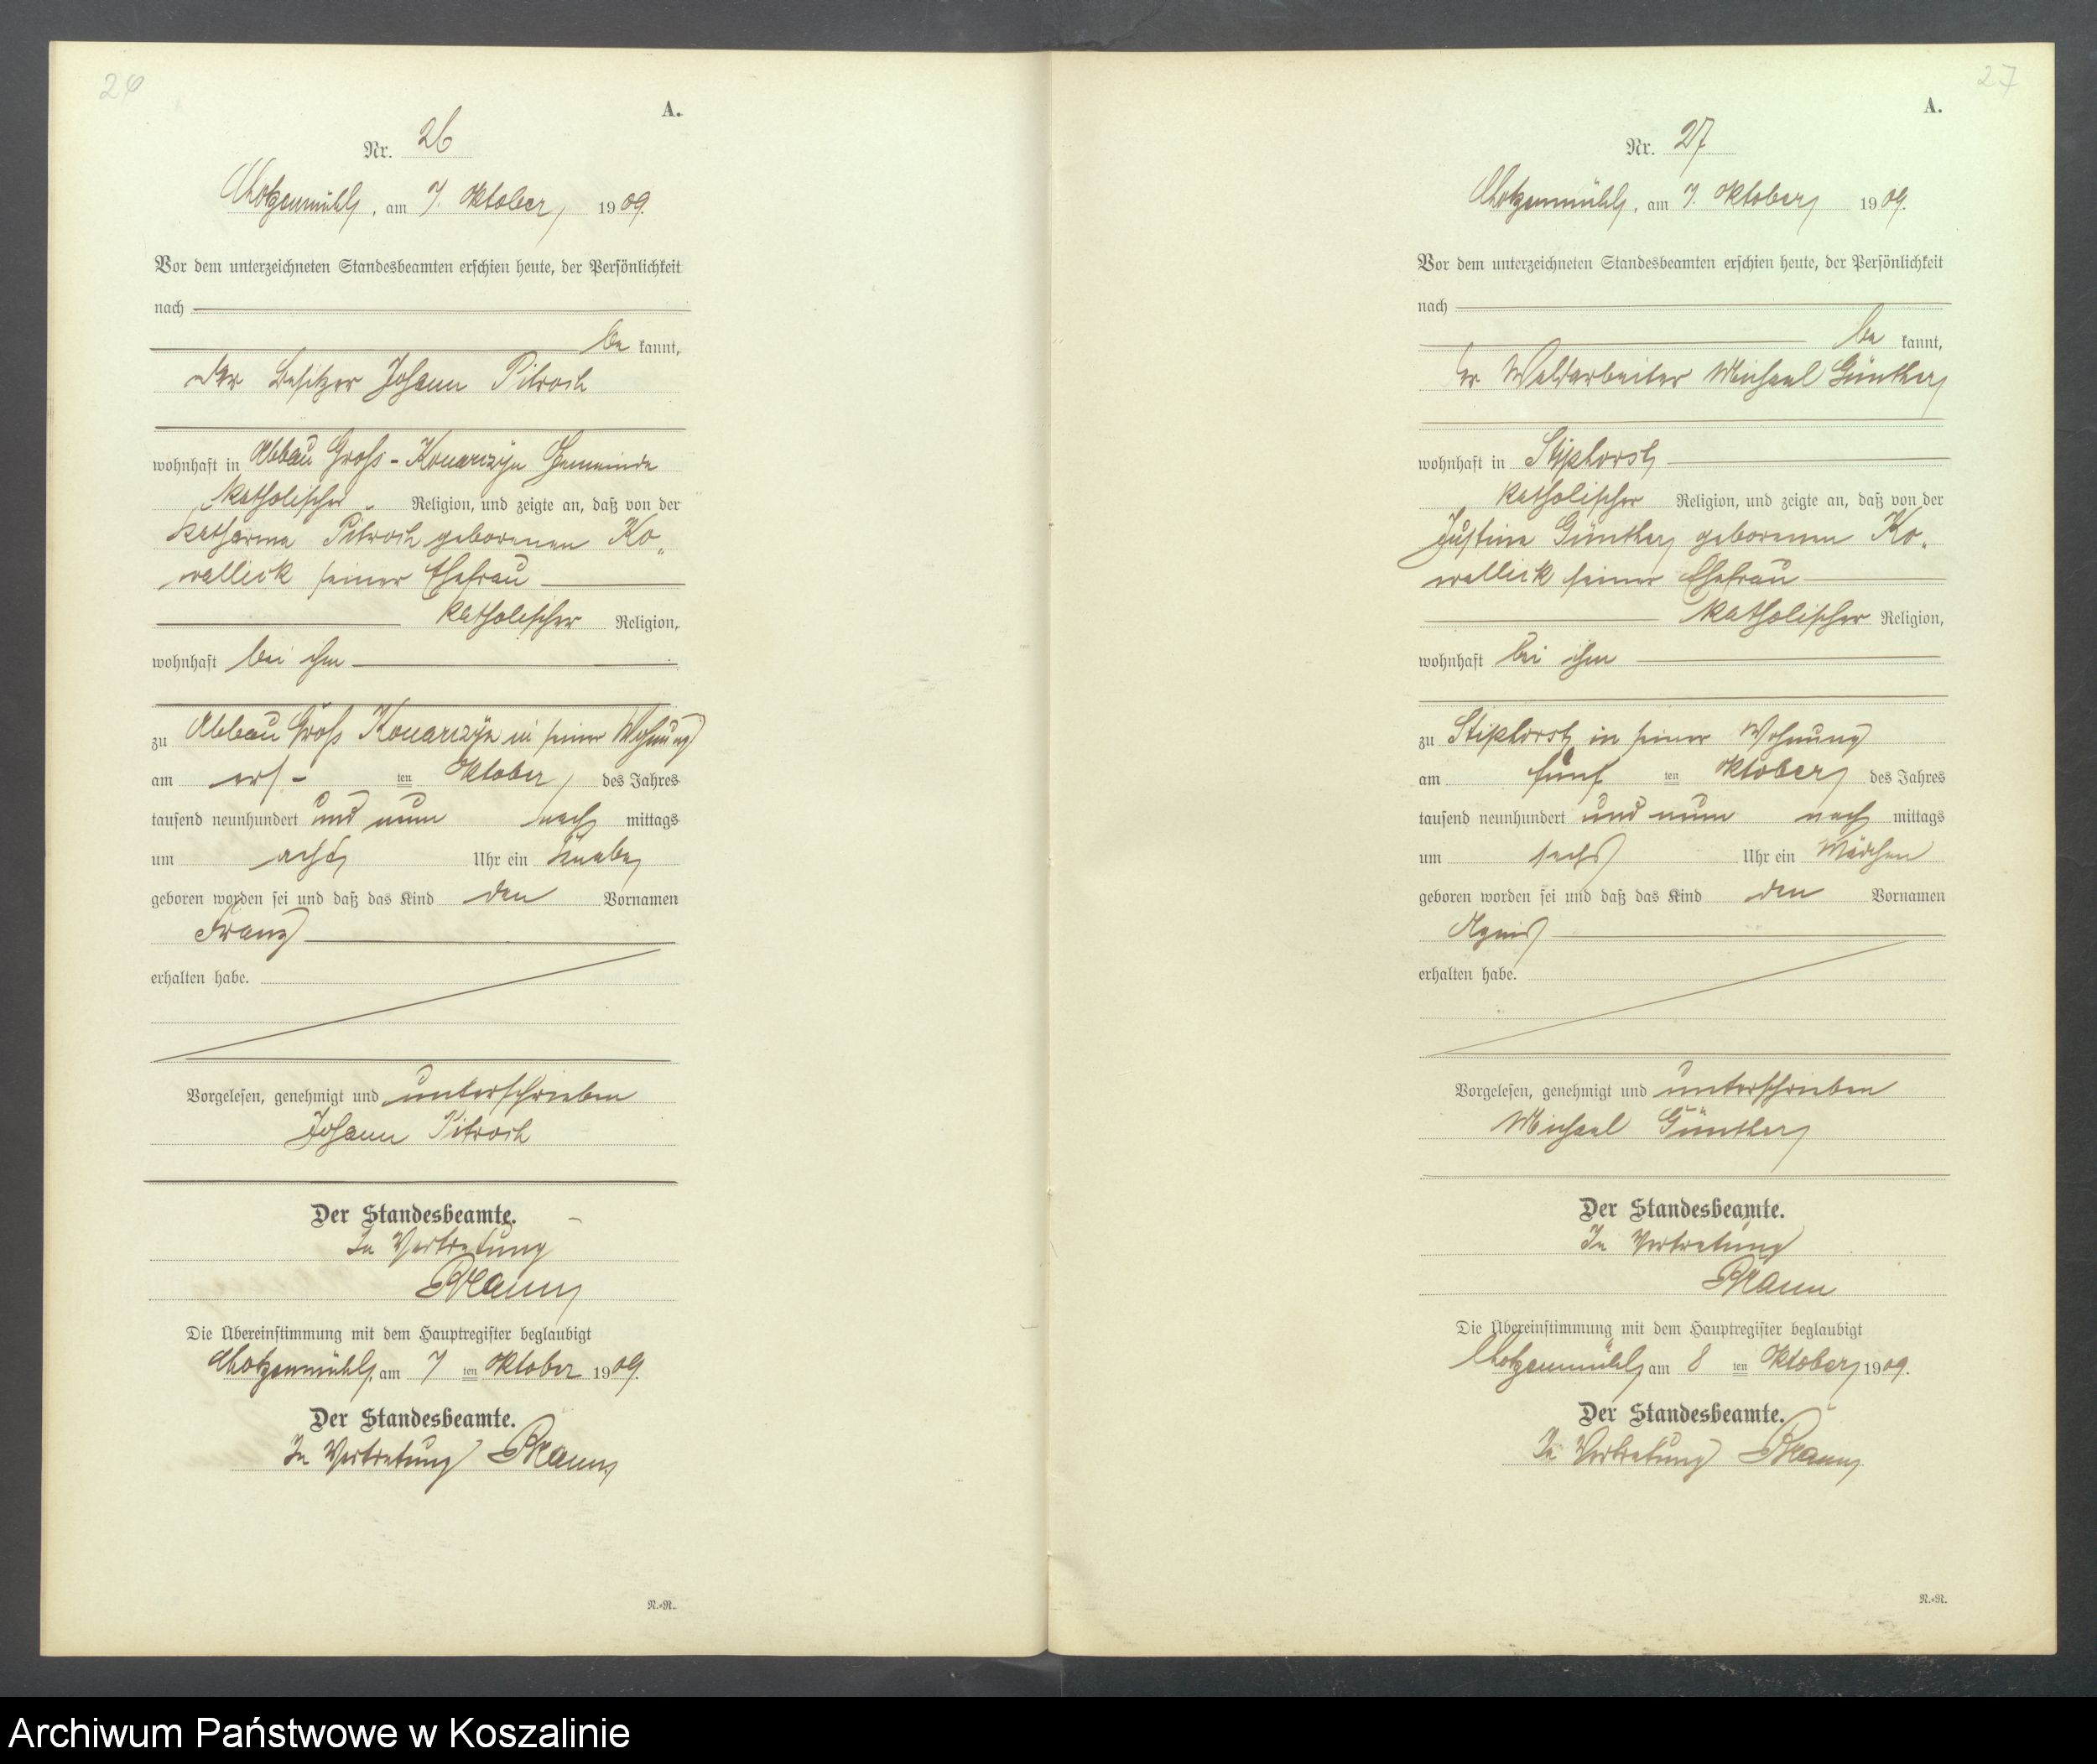 26
A.
Nr. 26
Chotzenmühl, am 7. Oktober 1909.
Vor dem unterzeichneten Standesbeamten erschien heute, der Persönlichkeit
nach
be kannt,
der Besitzer Johann Pitroch
wohnhaft in Abbau Gross-Konarczyn Gemeinde
katholischer Religion, und zeigte an, daß von der
Katharina Pitroch geborenen Ko„
wallick seiner Ehefrau
katholischer Religion,
wohnhaft bei ihm
zu Abbau Gross Konarczyn in seiner Wohnung
am ers- ten Oktober des Jahres
tausend neunhundert und neun nach mittags
um acht Uhr ein Knabe
geboren worden sei und daß das Kind den Vornamen
Franz
erhalten habe.
Vorgelesen, genehmigt und unterschrieben
Johann Pitroch
Der Standesbeamte.
In Vertretung
Braun
Die Übereinstimmung mit dem Hauptregister beglaubigt
Chotzenmühl, am 7 ten Oktober 1909.
Der Standesbeamte.
In Vertretung Braun
N.-R.
27
A.
Nr. 27
Chotzenmühl, am 7. Oktober 1909.
Vor dem unterzeichneten Standesbeamten erschien heute, der Persönlichkeit
nach
be kannt,
der Waldarbeiter Michael Günther
wohnhaft in Stiphorst
katholischer Religion, und zeigte an, daß von der
Justine Günther geborenen Ko„
wallick seiner Ehefrau
katholischer Religion,
wohnhaft bei ihm
zu Stiphorst in seiner Wohnung
am fünf ten Oktober des Jahres
tausend neunhundert und neun nach mittags
um sechs Uhr ein Mädchen
geboren worden sei und daß das Kind den Vornamen
Agnes
erhalten habe.
Vorgelesen, genehmigt und unterschrieben
Michael Günther
Der Standesbeamte.
In Vertretung
Braun
Die Übereinstimmung mit dem Hauptregister beglaubigt
Chotzenmühl, am 8 ten Oktober 1909.
Der Standesbeamte.
In Vertretung Braun
N.-R.
Archiwum Państwowe w Koszalinie